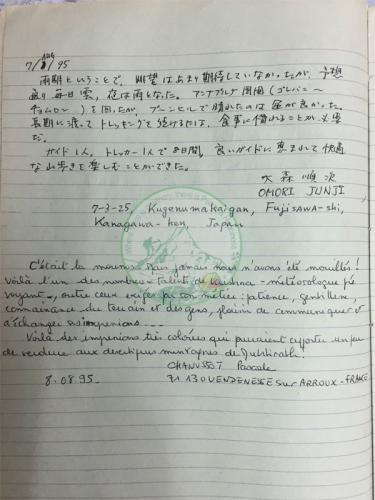 7/Aug/95
雨期ということで、眺望はあまり期待していなかったが、予想
通り毎日雲、夜は雨となった。アンナプルナ周囲(ゴレパニ〜
チョムロン)を回ったが、プーンヒルで晴れたのは運が良かった。
長期に渡ってトレッキングを続けるには、食事に慣れることが必要
だ。
ガイド1人、トレッカー1人で8日間、良いガイドに恵まれて快適
な山歩きを楽しむことができた。
大森順次
OMORI JUNJI
7-3-25, Kugenumakaigan, Fujisawa-shi,
Kanagawa-ken, Japan
C'était la mousson mais jamais nous n'avons été mouillés!
Voilà l'un des nombreux talents de Krishna - météorologue
voyant-, outre ceux exigés par son métier: patience, gentillesse,
connaissance du terrain et des gens, plaisir de communiquer et
d'échanger ses impressions....
Voilà des impressions très colorées qui pourraient apporter un peu
de verdure aux montagnes de
CHANUSSOT Pascale
8.08.95. 71130 VENDENESSE sur ARROUX - FRANCE